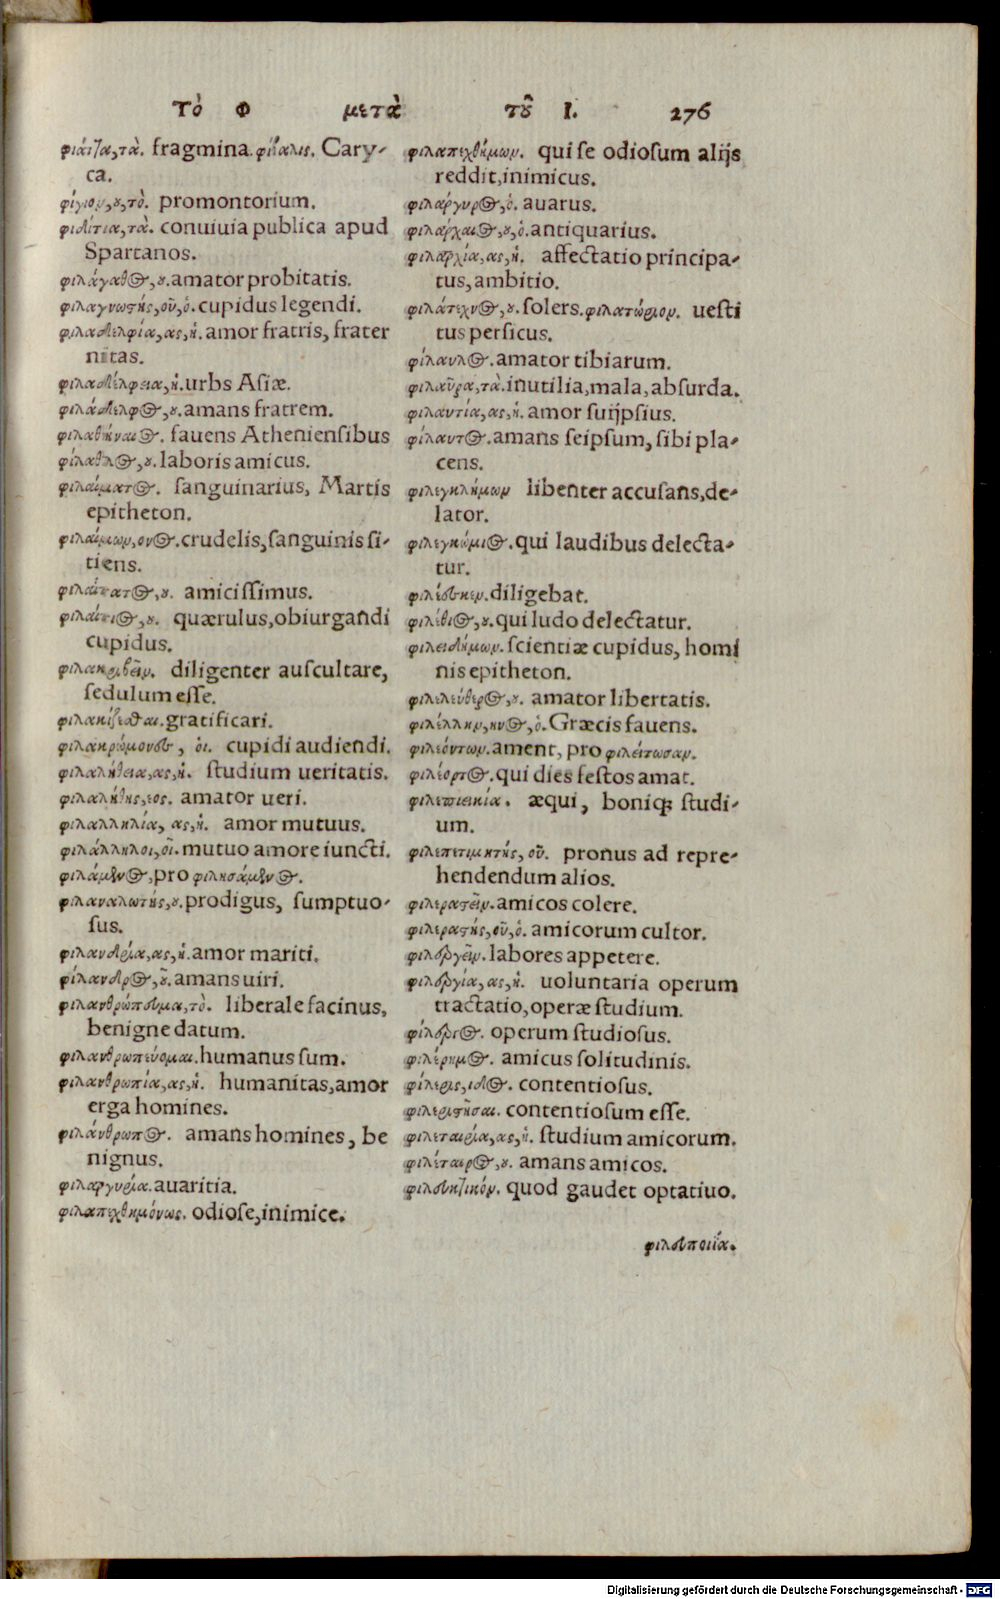 Τὸ Φ μετὰ τοῦ Ι. 276
fragmina. Cary-
ca.
φίγιον, ου, τὸ. promontorium.
φιδίτια, τὰ. conuiuia publica apud
Spartanos.
φιλάγαθος, ου. amator probitatis.
φιλαγνωστὴς, οῦ, ὁ. cupidus legendi.
φιλαδελφία, ας, ἡ. amor fratris, frater
nitas.
φιλαδέλφεια, ἡ. urbs Asiæ.
φιλάδελφος, ου. amans fratrem.
φιλαθήναιος. fauens Atheniensibus
φίλαθλος, ου. laboris amicus.
φιλαίματος. sanguinarius, Martis
epitheton.
φιλαίμων, ονος. crudelis, sanguinis si-
tiens.
φιλαίτατος, ου. amicissimus.
φιλαίτιος, ου. quærulus, obiurgandi
cupidus.
φιλακριβεῖν. diligenter auscultare,
sedulum esse.
φιλακίζεσθαι. gratificari.
φιλακρώμονες, οἱ. cupidi audiendi.
φιλαλήθεια, ας, ἡ. studium ueritatis.
φιλαλήθης, εος. amator ueri.
φιλαλληλία, ας, ἡ. amor mutuus.
φιλάλληλοι, οἱ. mutuo amore iuncti.
φιλάμενος, pro φιλησάμενος.
φιλαναλωτὴς, ου. prodigus, sumptuo-
sus.
φιλανδρία, ας, ἡ. amor mariti.
φίλανδρος, ου. amans uiri.
φιλανθρώπευμα, τὸ. liberale facinus,
benigne datum.
φιλανθρωπεύομαι. humanus sum.
φιλανθρωπία, ας, ἡ. humanitas, amor
erga homines.
φιλάνθρωπος. amans homines, be
nignus.
φιλαργυρία. auaritia.
φιλαπεχθημόνως. odiose, inimice.
φιλαπεχθήμων. qui se odiosum alijs
reddit, inimicus.
φιλάργυρος, ὁ. auarus.
φιλάρχαιος, ου, ὁ. antiquarius.
φιλαρχία, ας, ἡ. affectatio principa-
tus, ambitio.
φιλάτεχνος, ου. solers. uesti
tus persicus.
φίλαυλος. amator tibiarum.
φιλαῦρα, τὰ. inutilia, mala, absurda.
φιλαυτία, ας, ἡ. amor suijpsius.
φίλαυτος. amans seipsum, sibi pla-
cens.
φιλεγκλήμων libenter accusans, de-
lator.
φιλεγκώμιος. qui laudibus delecta-
tur.
φιλέεσκεν. diligebat.
φιλέθιος, ου. qui ludo delectatur.
φιλειδήμων. scientiæ cupidus, homi
nis epitheton.
φιλελεύθερος, ου. amator libertatis.
φιλέλλην, ηνος, ὁ. Græcis fauens.
φιλεόντων. ament, pro φιλείτωσαν.
φιλέορτος. qui dies festos amat.
φιλεπιεικία. æqui, boniq; studi-
um.
φιλεπιτιμητὴς, οῦ. pronus ad repre-
hendendum alios.
φιλεραστεῖν. amicos colere.
φιλεραστὴς, οῦ, ὁ. amicorum cultor.
φιλεργεῖν. labores appetere.
φιλεργία, ας, ἡ. uoluntaria operum
tractatio, operæ studium.
φίλεργος. operum studiosus.
φιλέρημος. amicus solitudinis.
φίλερις, ιδος. contentiosus.
φιλεριστῆσαι. contentiosum esse.
φιλεταιρία, ας, ἡ. studium amicorum.
φιλέταιρος, ου. amans amicos.
φιλευκτικόν. quod gaudet optatiuo.
φιλευποιΐα.
Digitalisierung gefördert durch die Deutsche Forschungsgemeinschaft - DFG